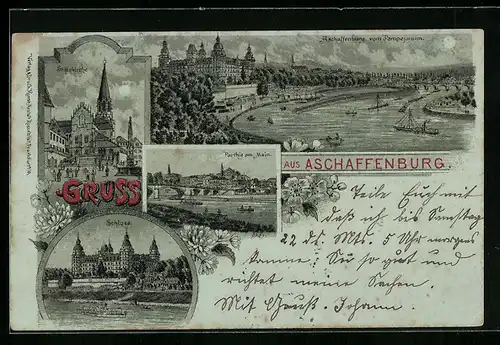 Aschaffenburg vom Pompejanum.
Stiftskirche
Parthie am Main.
GRUSS
AUS ASCHAFFENBURG.
Schloss
Teile Euch mit
daß ich bis Samstag
22 ds. Mts. 5 Uhr morgens
komme. Sei so gut und
richtet meine Sachen.
Mit Gruß. Johann.